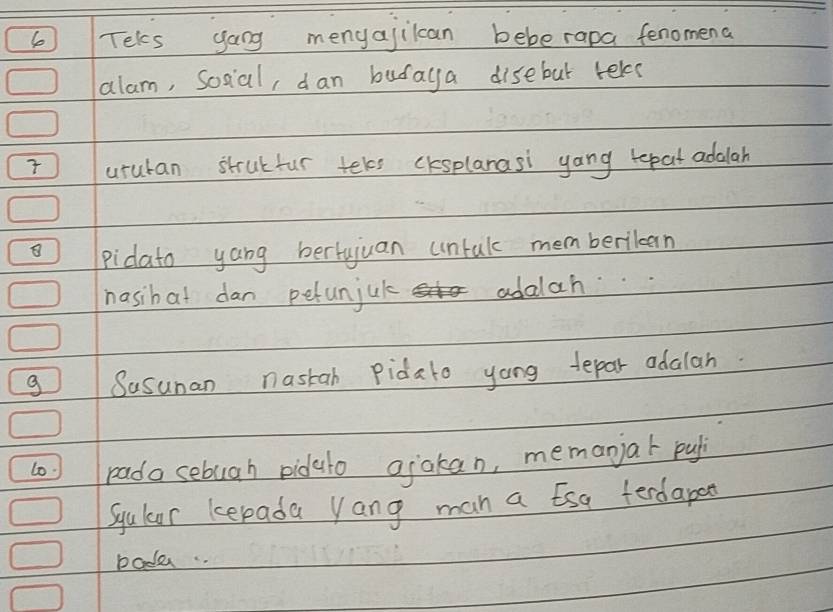 6 Teks yang menyajikan beberapa fenomena
alam, Sosial, dan budaya disebut teks
7 urutan struktur teks eksplanasi yang tepat adalah
8 pidato yang bertujuan untuk memberikan
nasihat dan petunjuk adalah...
9 Susunan naskah Pidato yang tepat adalah.
10. pada sebuah pidato ajakan, memanjat puji
Syukur kepada Yang maha Esa terdapat
pada..